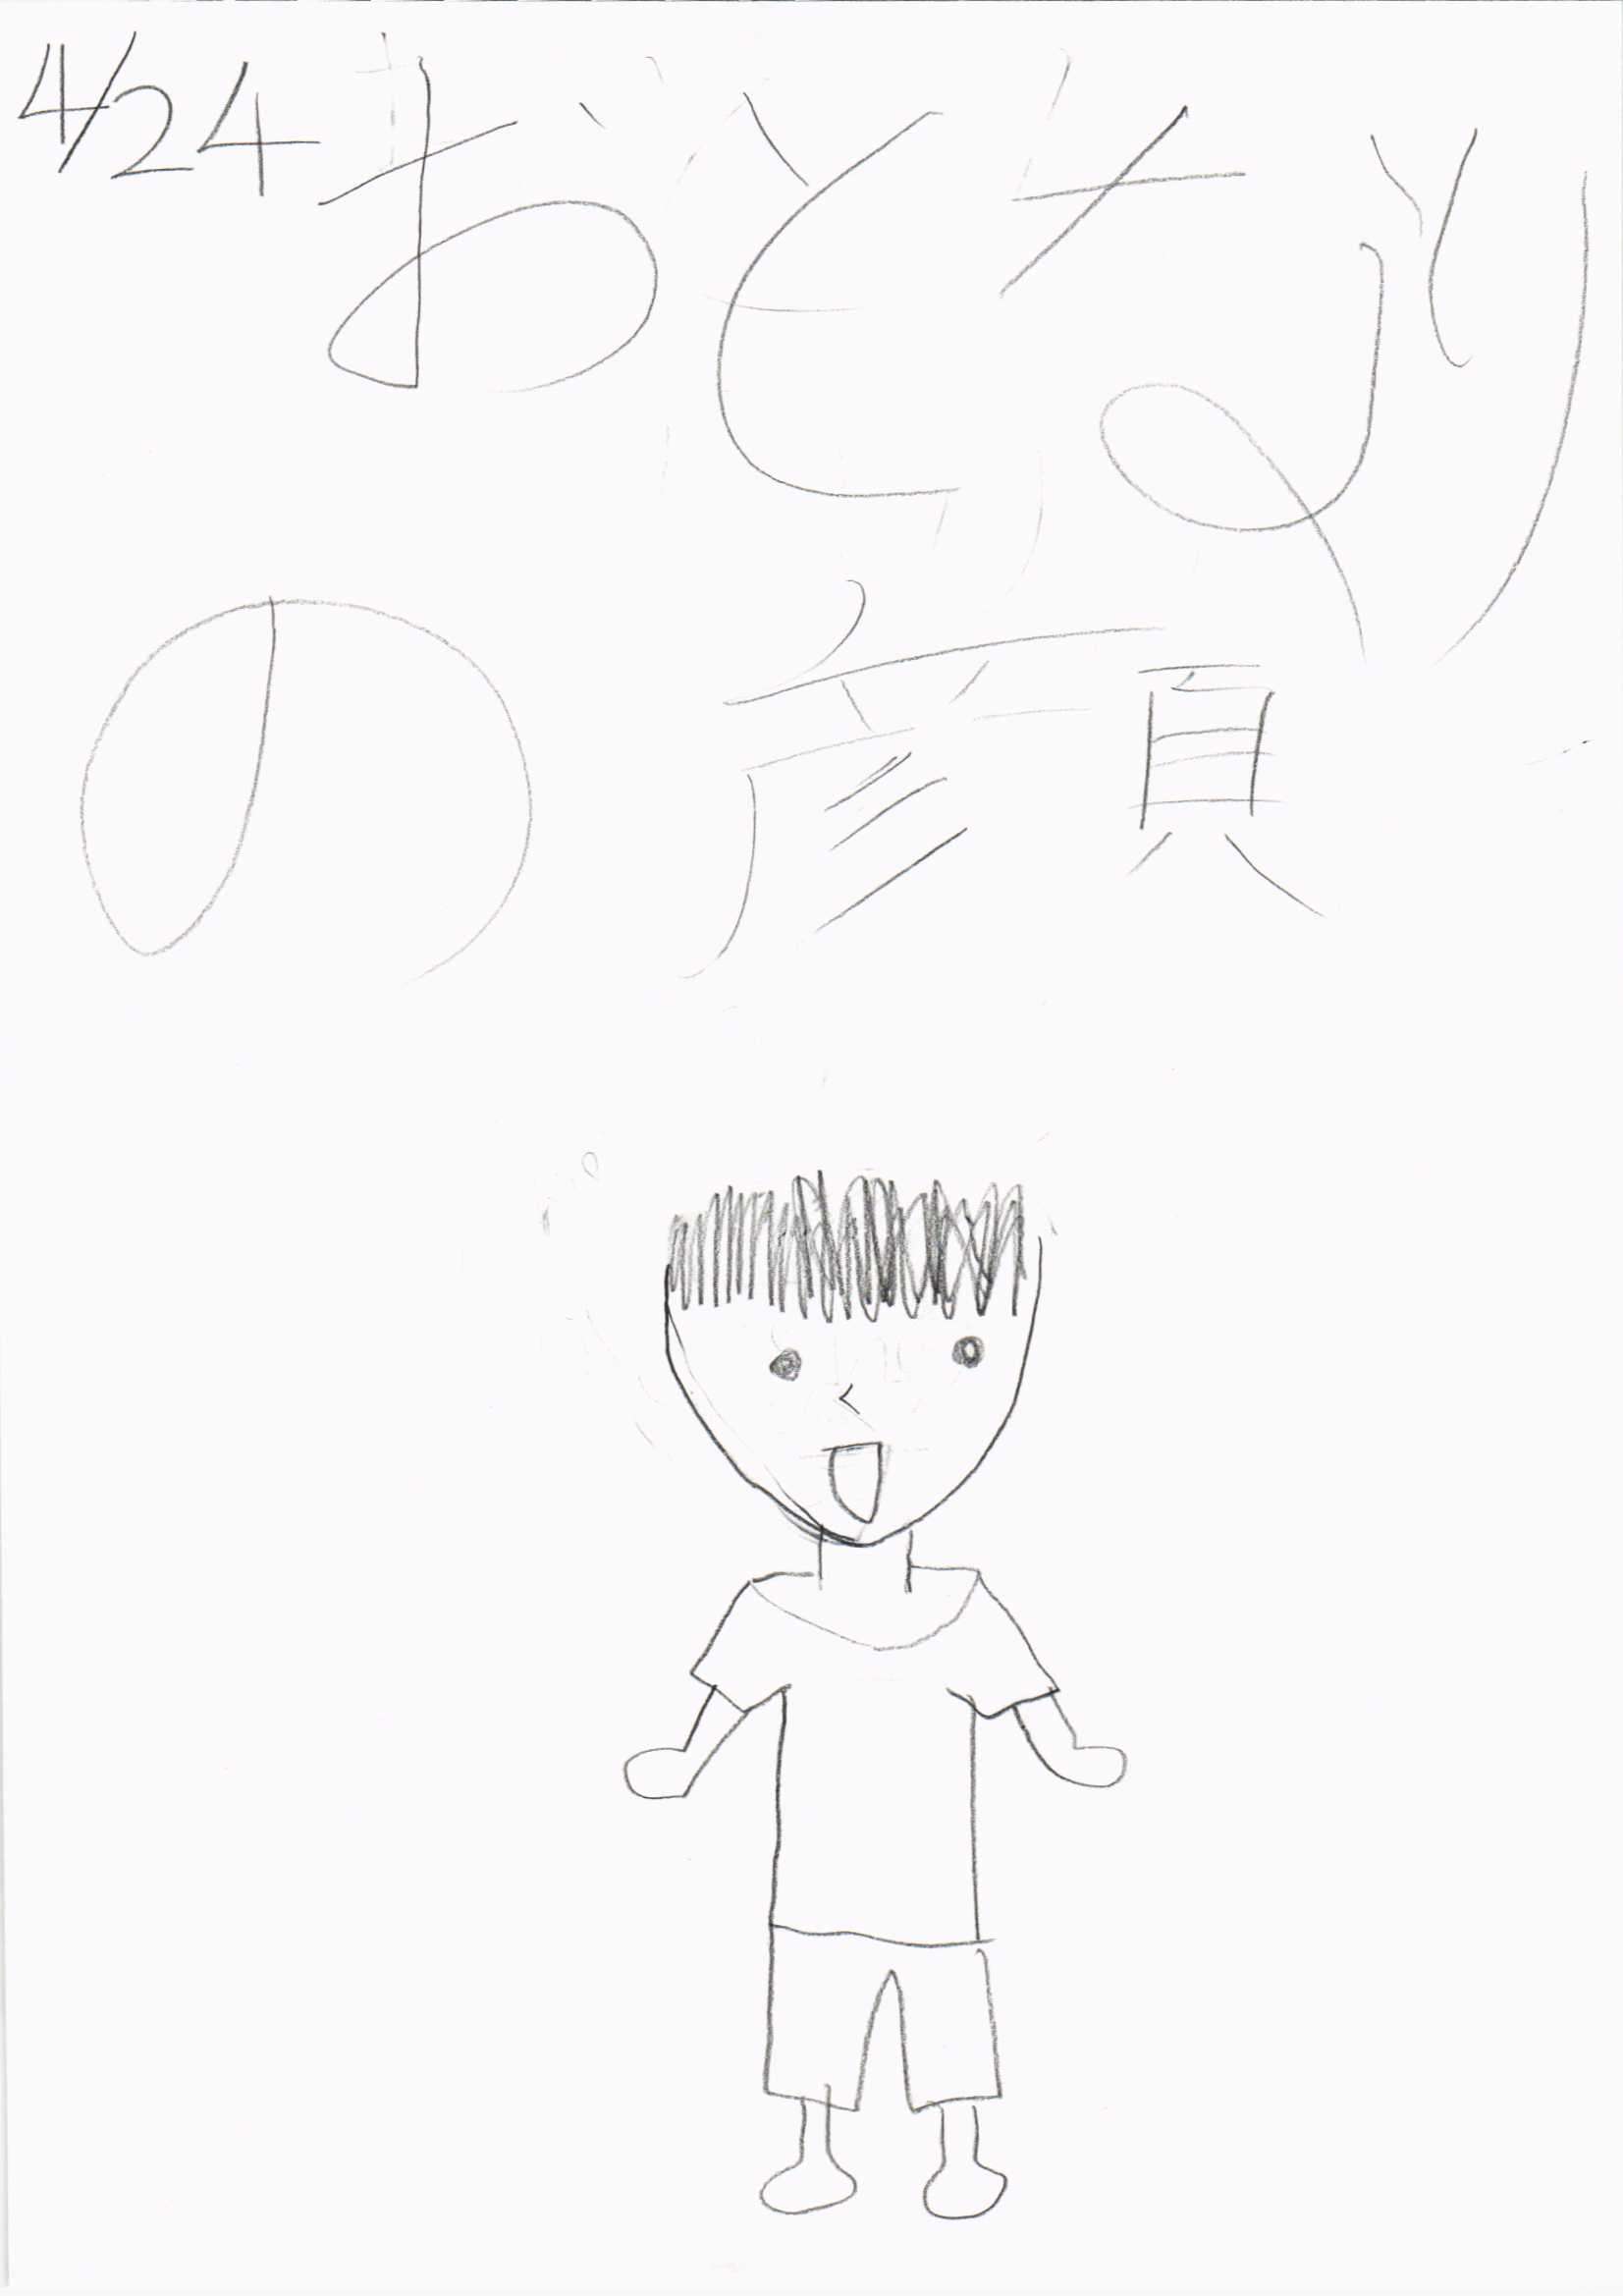 4/24 おとなり
の顔